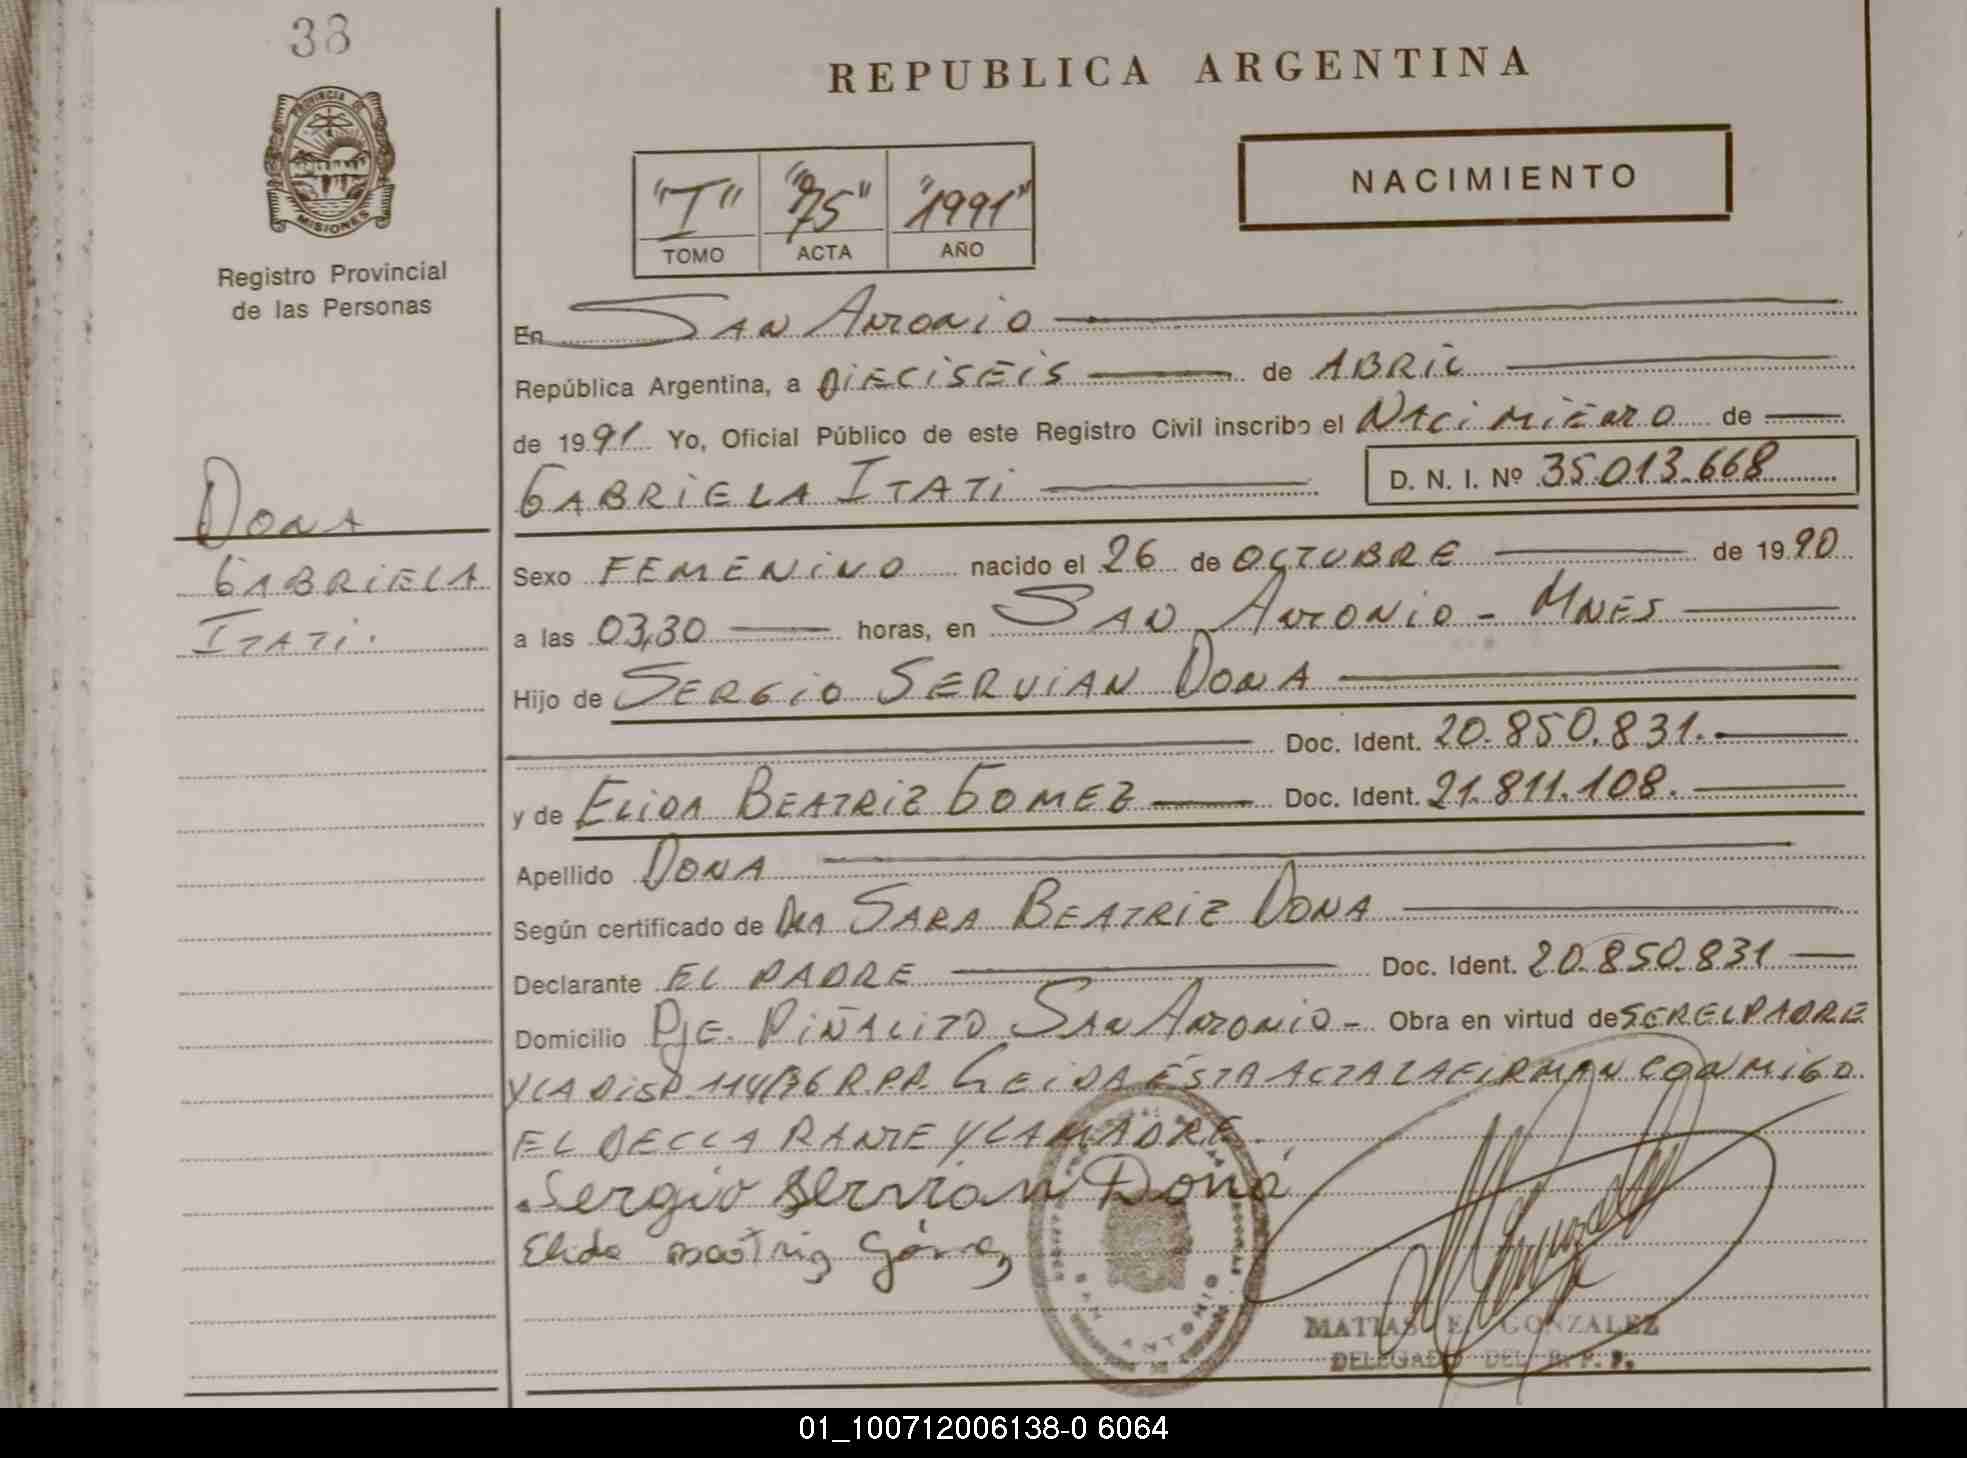 38
PROVINCIA DE
MISIONES
Registro Provincial
de las Personas
DONA
GABRIELA
ITATI.
REPUBLICA ARGENTINA
"I" "75" "1991"
TOMO ACTA AÑO
NACIMIENTO
En SAN ANTONIO
República Argentina, a DIECISEIS de ABRIL
de 1991 Yo, Oficial Público de este Registro Civil inscribo el NACIMIENTO de
GABRIELA ITATI D. N. I. Nº 35.013.668
Sexo FEMENINO nacido el 26 de OCTUBRE de 1990
a las 03,30 horas, en SAN ANTONIO - MNES
Hijo de SERGIO SERVIAN DONA
Doc. Ident. 20.850.831.
y de ELIDA BEATRIZ GOMEZ Doc. Ident. 21.811.108.
Apellido DONA
Según certificado de SARA BEATRIZ DONA
Declarante EL PADRE Doc. Ident. 20.850.831
Domicilio PJE. PIÑALITO SAN ANTONIO - Obra en virtud de SER EL PADRE
Y LA DISP. R.P.P. LEIDA ESTA ACTA LA FIRMAN CONMIGO
EL DECLARANTE Y LA MADRE.
Sergio Servian Doná
Elida Beatriz Gómez
SAN ANTONIO
MATIAS E. GONZALEZ
DELEGADO DEL R. P. P.
01_100712006138-0 6064